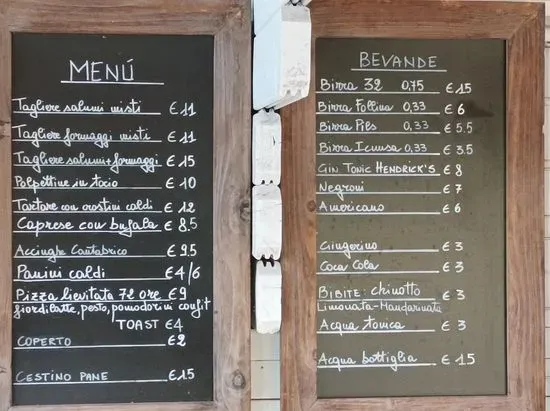 MENÚ
Tagliere salumi misti €11
Tagliere formaggi misti €11
Tagliere salumi+formaggi €15
Polpettine in tocio €10
Tartare con crostini caldi € 12
Caprese con bufala € 8.5
Acciughe Cantabrico €9.5
Panini caldi €4/6
Pizza lievitata 72 ore €9
fiordilatte, pesto, pomodorini confit
TOAST €4
COPERTO €2
CESTINO PANE €1.5
BEVANDE
Birra 32 0,75 €15
Birra Follina 0,33 € 6
Birra Pils 0,33 € 5.5
Birra Icnusa 0,33 € 3.5
GIN TONIC HENDRICK'S € 8
Negroni € 7
Americano € 6
Gingerino € 3
Coca Cola € 3
BIBITE: chinotto € 3
Limonata-Mandarinata
Acqua tonica € 3
Acqua bottiglia € 1.5